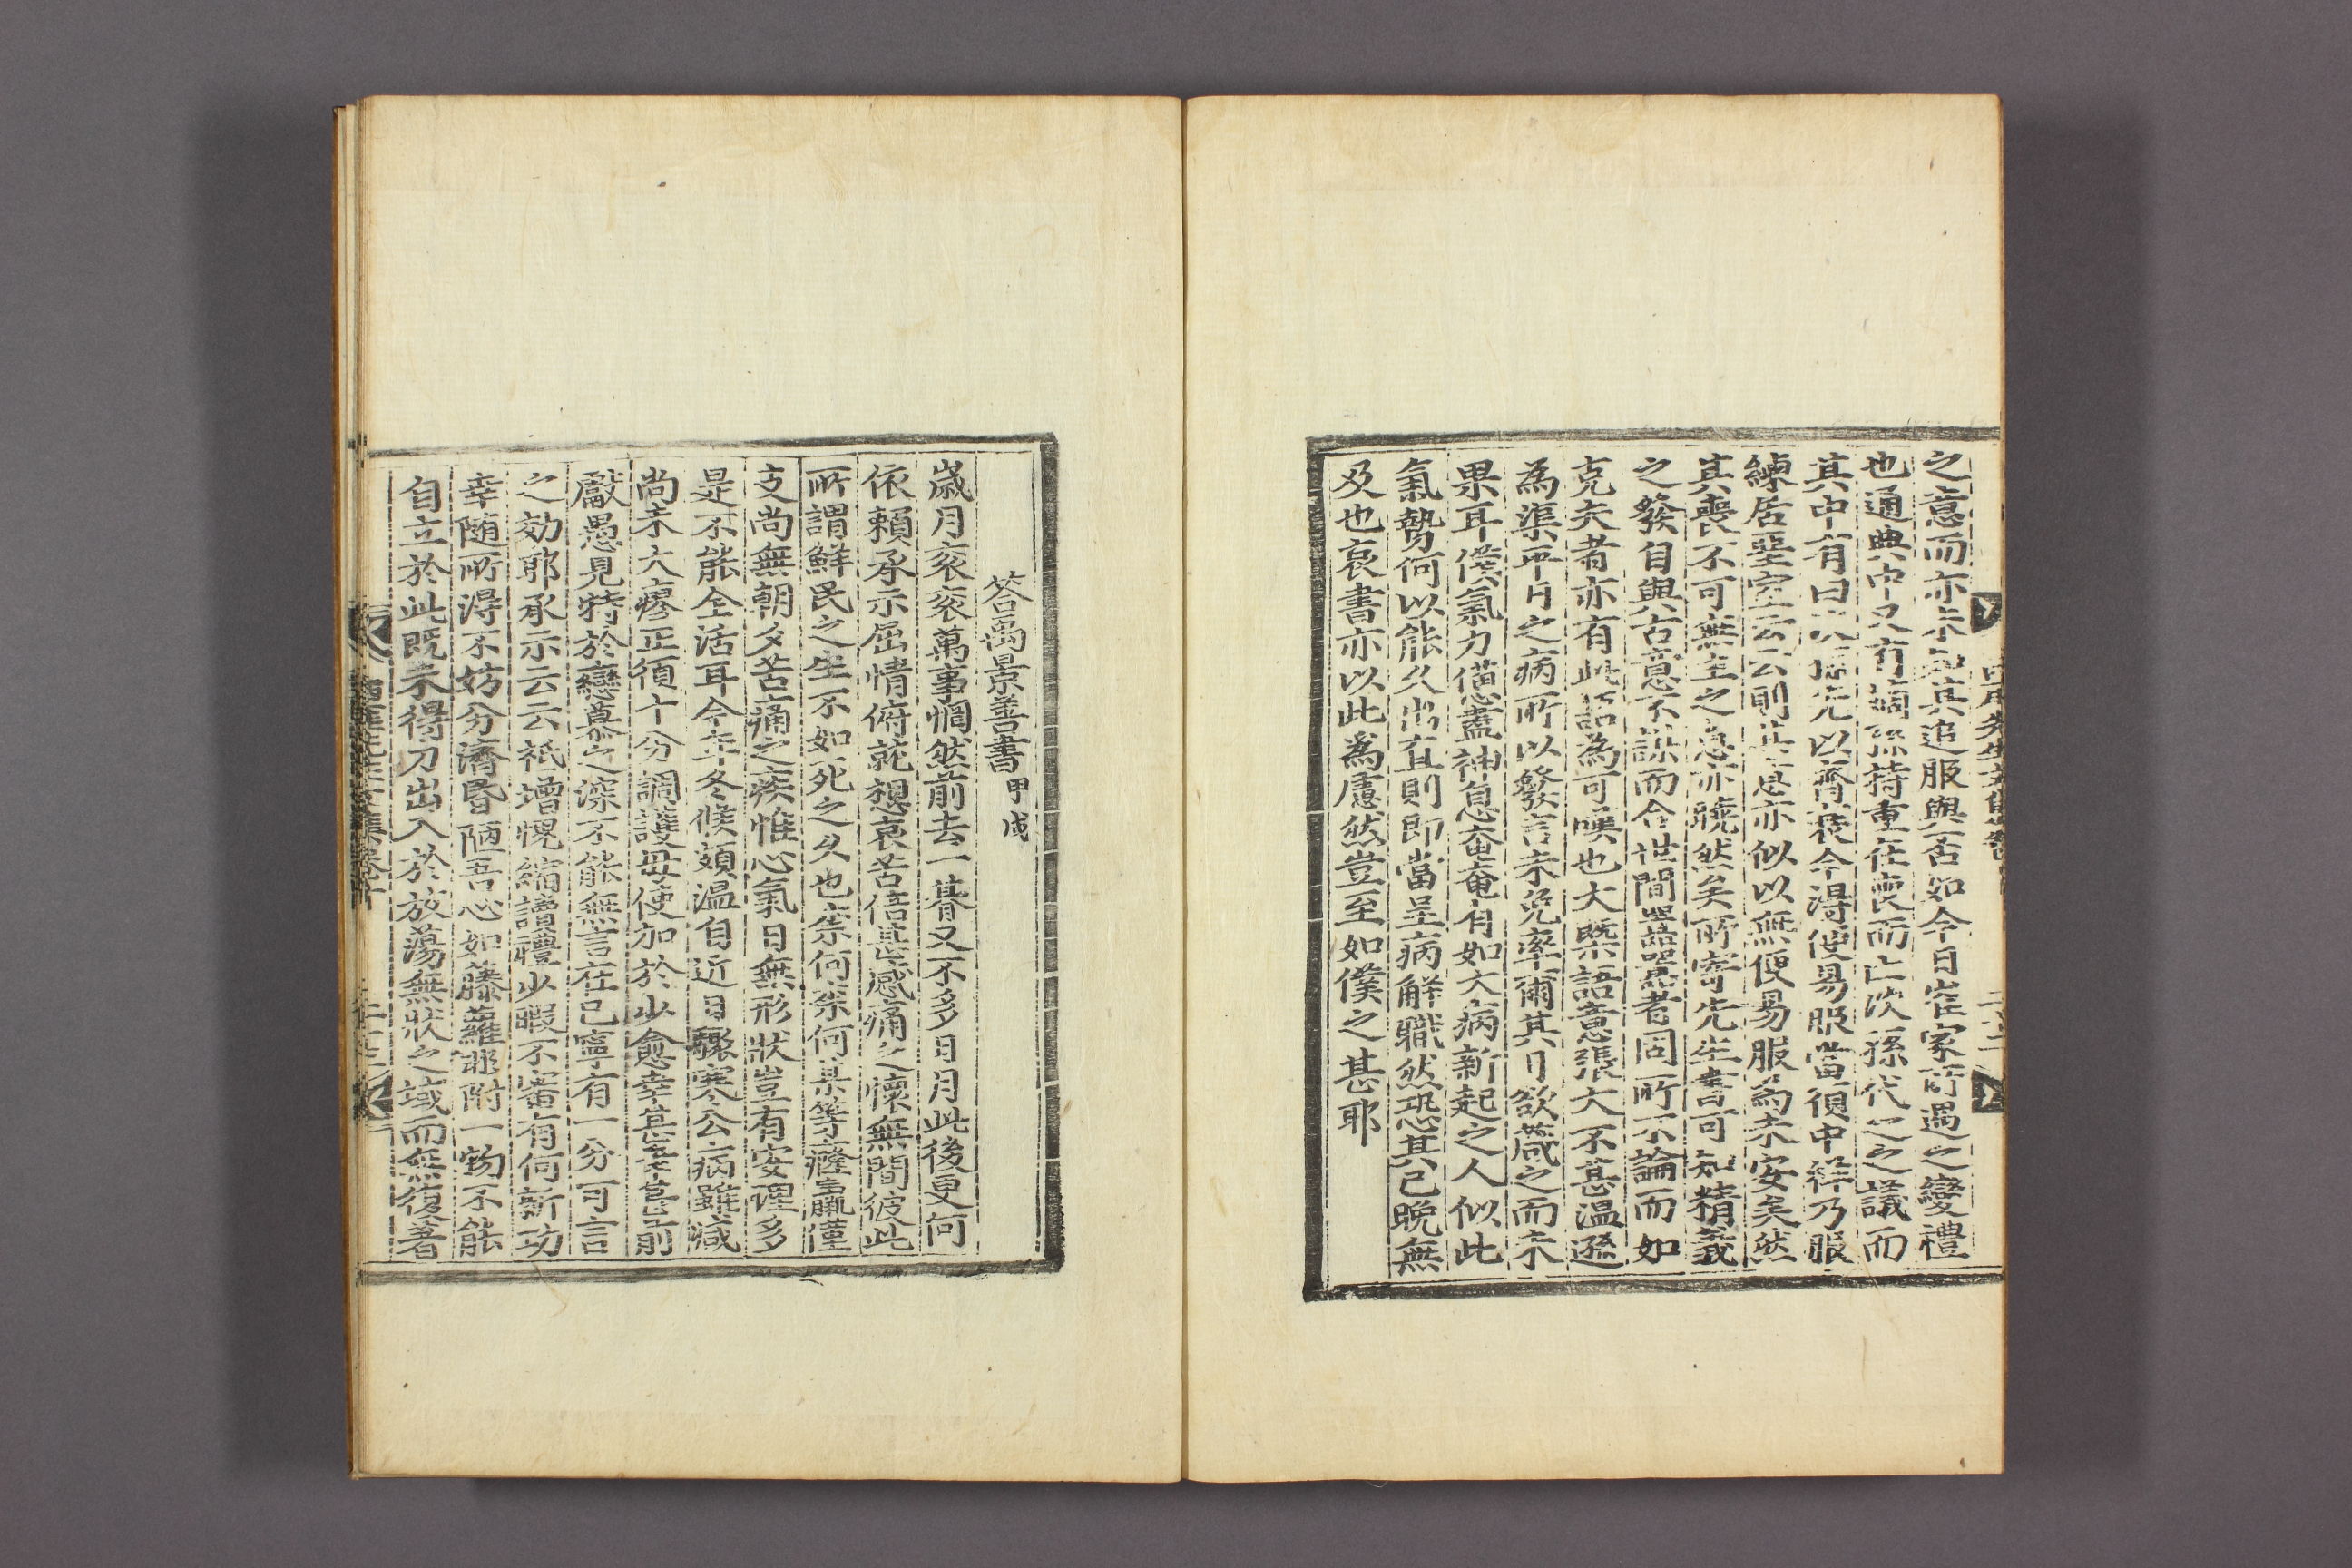 之意而亦未知其追服與否如今日崔家所遇之變禮
也通典中又有嫡孫持重在喪而亡次孫代之之議而
其中有曰次孫先以齊衰今得便易服當須中祥乃服
練居堊室云云則其意亦似以無便易服爲未安矣然
其喪不可無主之意亦曉然矣所寄先生書可知精義
之發自與古意不謀而今世間嘂嘂者固所不論而如
克夫者亦有此語為可嘆也大槩語意張大不甚温遜
為渠平日之病所以發言未免率爾其日欲箴之而未
果耳僕氣力憊盡神息奄奄有如大病新起之人似此
氣勢何以能久出直則即當呈病解職然恐其已晩無
及也哀書亦以此為慮然豈至如僕之甚耶
答禹景善書 甲戌
歲月衮衮萬事惘然前去一朞又不多日月此後更何
依頼承示屈情俯就想哀苦倍甚感痛之懷無間彼此
所謂鮮民之生不如死之久也柰何柰何景等癃羸僅
支尚無朝夕苦痛之疾惟心氣日無形狀豈有安理多
是不能全活耳今年冬候頗温自近日驟寒公病雖减
尚未大瘳正須十分調護毋使加於少愈幸甚幸甚前
獻愚見特於戀慕之深不能無言在已寧有一分可言
之効耶承示云云祗增愧縮讀禮少暇不審有何新功
幸随所得不妨分濟昏陋吾心如藤蘿耶附一物不能
自立於此既未得力出入於放蕩無狀之域而無復著